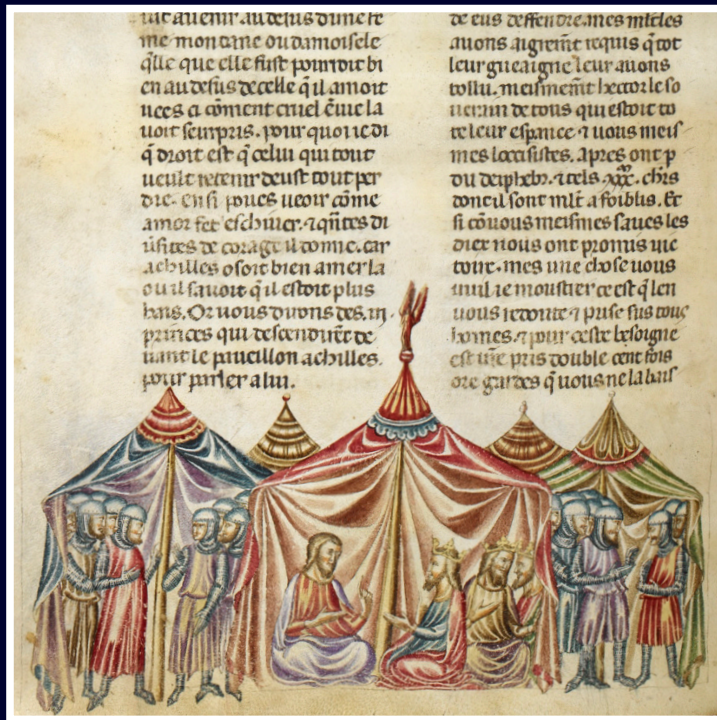 uit auenir. au desus dune fe
me mondaine ou damoisele
q̃lle que elle fust pourroit bi
en au desus de celle q̃ il amoit
uees ci cõment cruel ẽuie la
uoit sempris. pour quoi ie di
q̃ droit est q̃ celui qui tout
ueult retenir deust tout per
dre. ensi poues ueoir cõme
amor fet eschiuer. ⁊ q̃ñtes di
ũsites de corage il donne. car
achilles osoit bien amer la
ou il sauoit q̃ il estoit plus
hais. Or uous dirons des .iii.
princes qui descendirẽt de
uant le paueillon achilles.
pour parler a lui.
de eus deffendre. mes mlt̃ les
auons aigremt̃ requis q̃ tot
leur gueaigne leur auons
tollu. meismemt̃ hector le so
uerain de tous qui estoit to
te leur espance ⁊ uous meis
mes loceisistes. apres ont p
du deiphebr. ⁊ tels .xxx. chrs̃
dont il sont mlt̃ afoiblis. Et
si cõ uous meismes saues les
diex nous ont promis uic
toire. mes une chose uous
uuil ie moustrer ce est q̃ len
uous redoute ⁊ prise sus tous
homes. ⁊ pour ceste besoigne
est ure pris double cent fois
ore gardes q̃ uous ne la bais